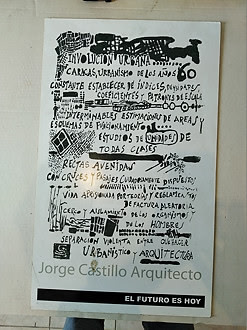 INVOLUCION URBANA
CARACAS, URBANISMO DE LOS AÑOS 60
CONSTANTE ESTABLECER DE INDICES, DENSIDADES
COEFICIENTES Y PATRONES DE ESCALA
INTERMINABLES ESTIMACIONES DE AREAS Y
ESQUEMAS DE FUNCIONAMIENTO
ESTUDIOS DE UNIDADES DE
TODAS CLASES
RECTAS AVENIDAS
CON CRUCES Y PASAJES CUIDADOSAMENTE DISPUESTOS
VIDA APRISIONADA POR
DE FACTURA ALEATORIA
CERO Y AISLAMIENTO DE LOS ORGANISMOS
Y DE LOS HOMBRES
SEPARACION VIOLENTA ENTRE QUEHACER
URBANISTICO Y ARQUITECTURA
Jorge Castillo Arquitecto
EL FUTURO ES HOY